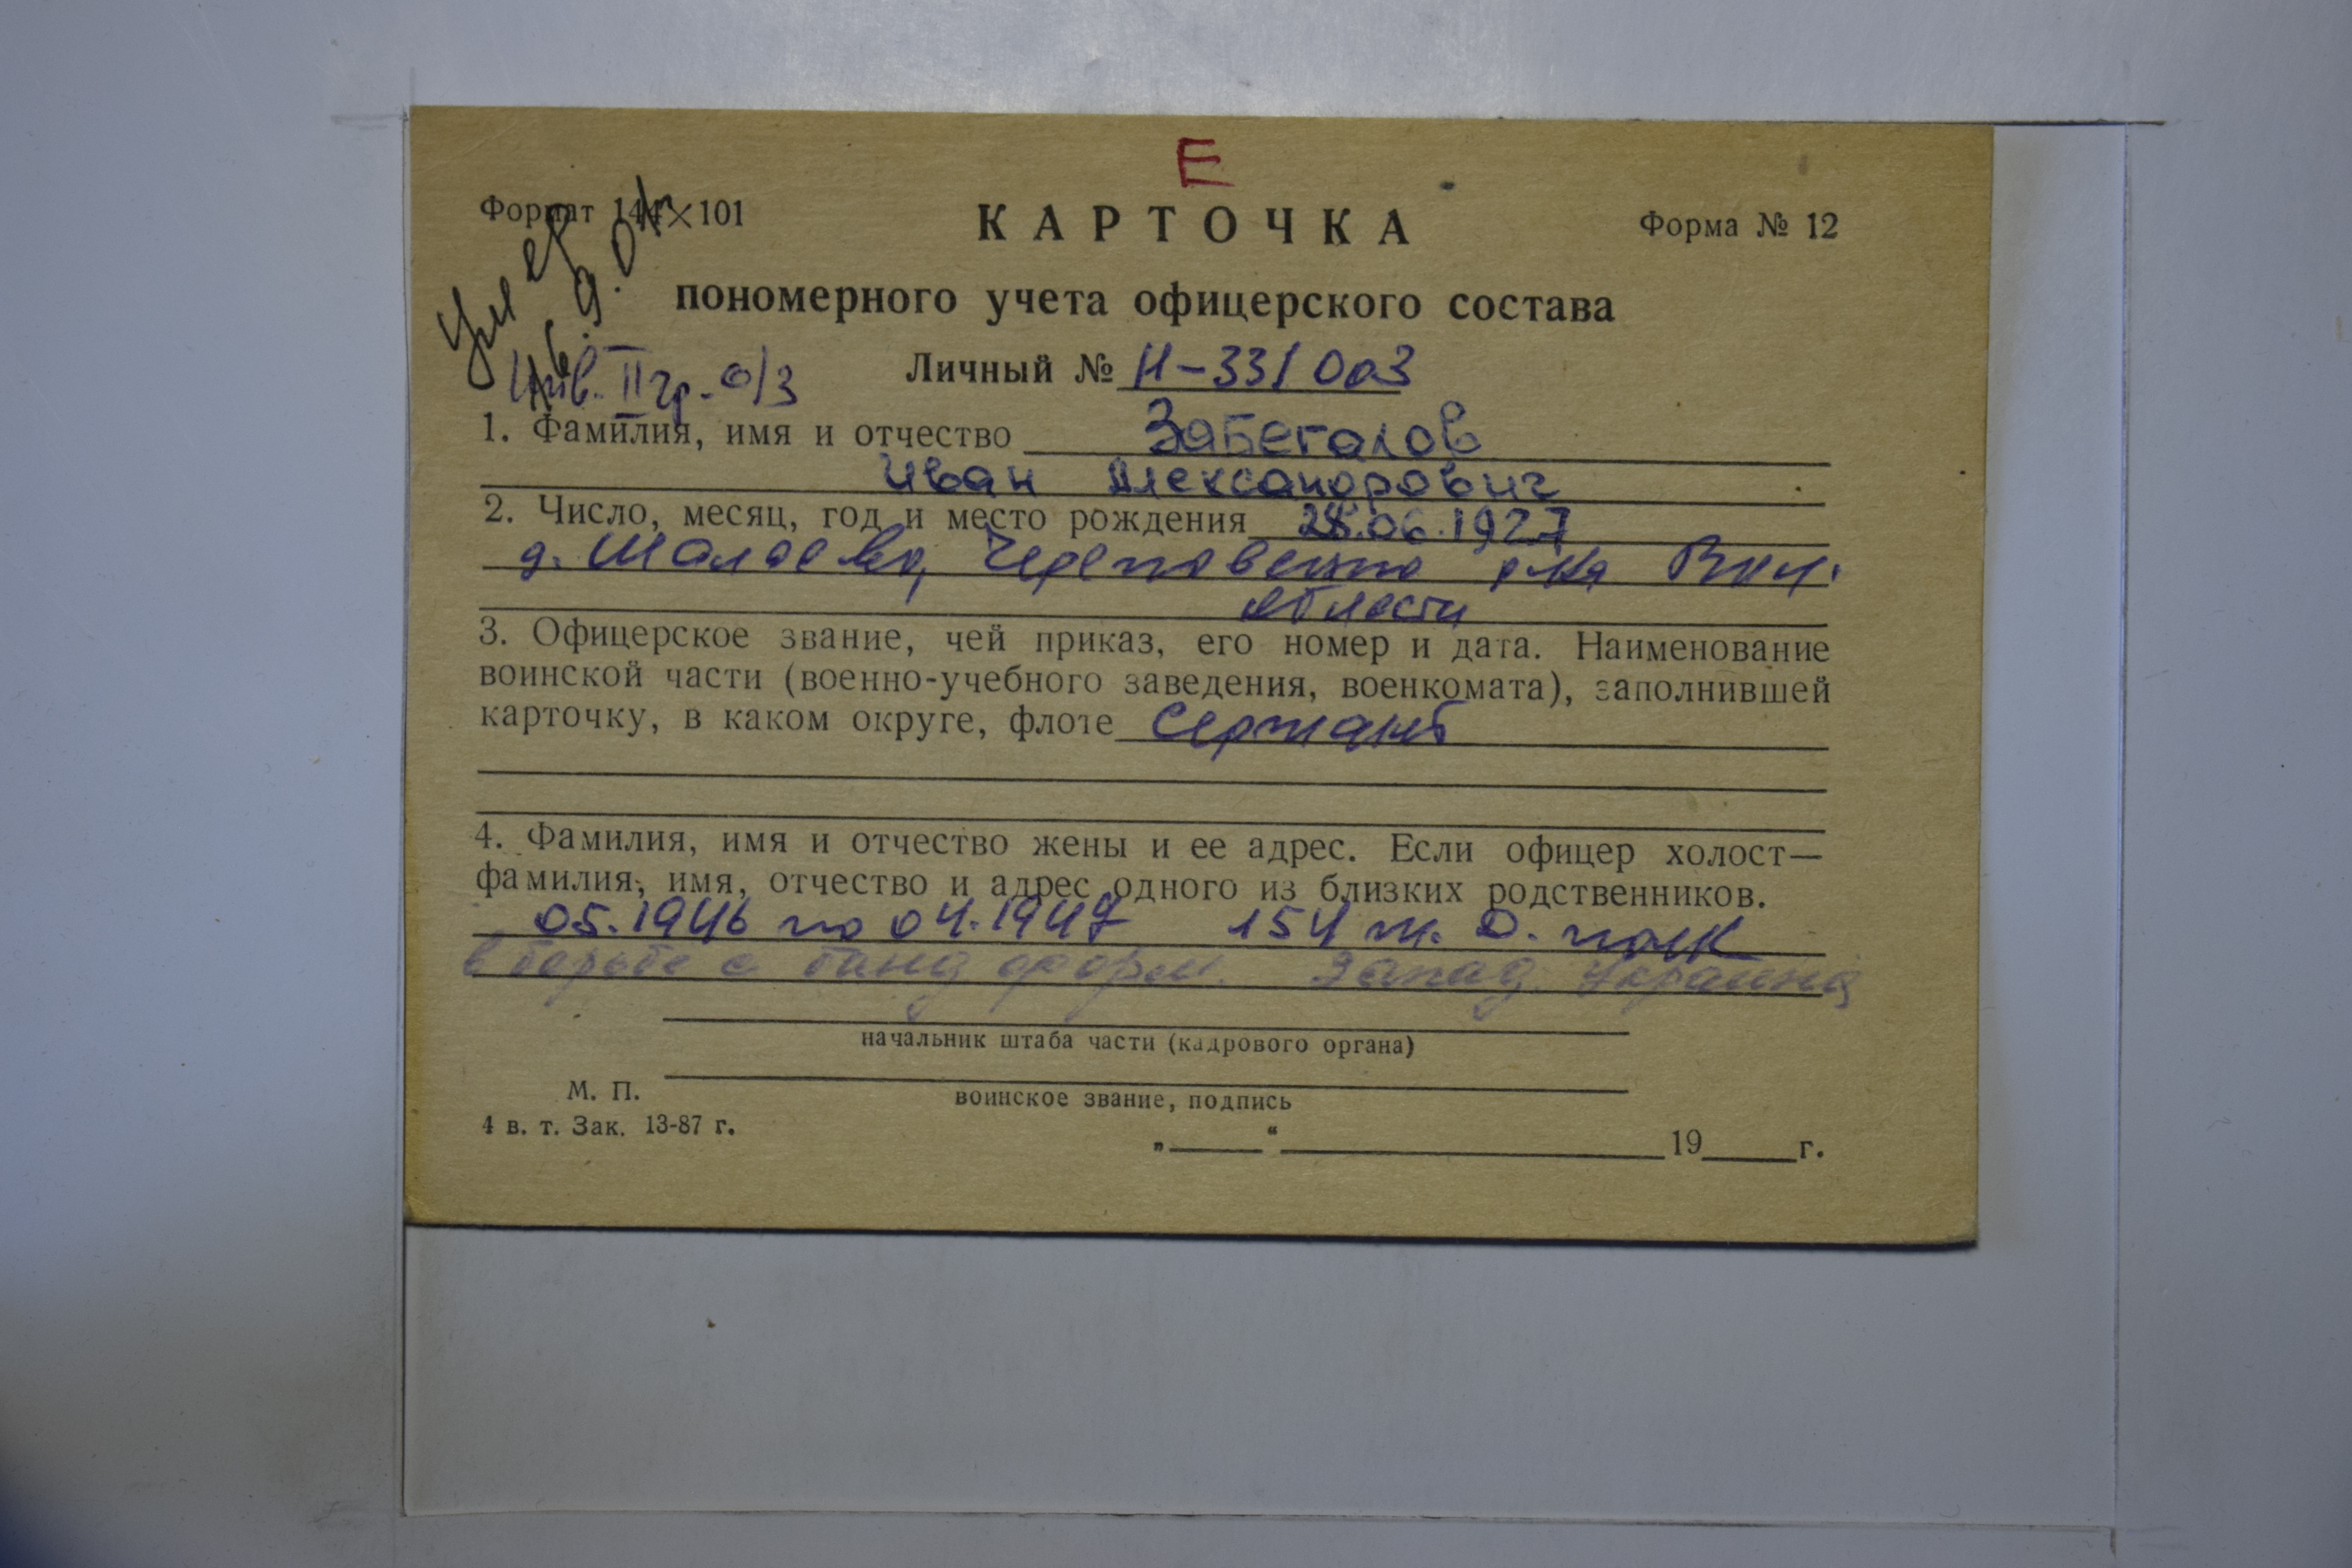 Е
Формат 144×101
КАРТОЧКА
Форма № 12
пономерного учета офицерского состава
умер
16.9.04
Инв. II гр. о/з
Личный № Н-331003
1. Фамилия, имя и отчество Забегалов
Иван Александрович
2. Число, месяц, год и место рождения 28.06.1927
д. Череповецко р-на Вол.
области
3. Офицерское звание, чей приказ, его номер и дата. Наименование
воинской части (военно-учебного заведения, военкомата), заполнившей
карточку, в каком округе, флоте сержант
4. Фамилия, имя и отчество жены и ее адрес. Если офицер холост—
фамилия, имя, отчество и адрес одного из близких родственников.
05.1946 по 04.1947 154 полк
в борьбе с банд форм. Запад. Украина
начальник штаба части (кадрового органа)
М. П.
воинское звание, подпись
4 в. т. Зак. 13-87 г.
„____“ ____________ 19____г.